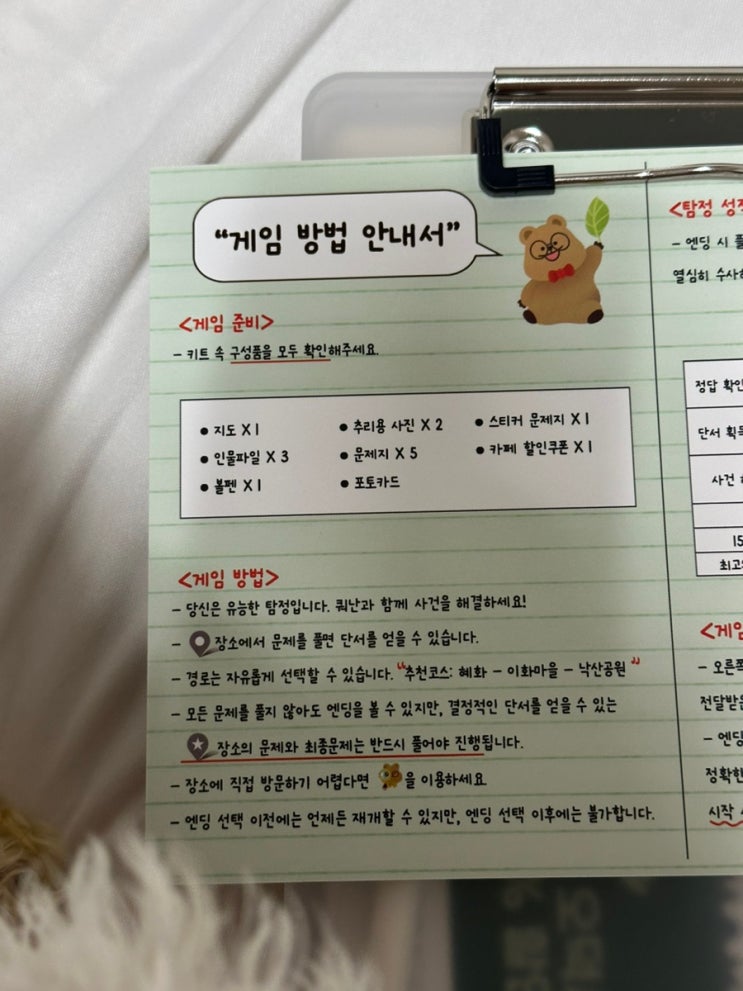 "게임 방법 안내서"
<게임 준비>
- 키트 속 구성품을 모두 확인해주세요.
● 지도 X 1
● 추리용 사진 X 2
● 스티커 문제지 X 1
● 인물파일 X 3
● 문제지 X 5
● 카페 할인쿠폰 X 1
● 볼펜 X 1
● 포토카드
<게임 방법>
- 당신은 유능한 탐정입니다. 쿼난과 함께 사건을 해결하세요!
- 장소에서 문제를 풀면 단서를 얻을 수 있습니다.
- 경로는 자유롭게 선택할 수 있습니다. "추천코스: 혜화 - 이화마을 - 낙산공원"
- 모든 문제를 풀지 않아도 엔딩을 볼 수 있지만, 결정적인 단서를 얻을 수 있는
장소의 문제와 최종문제는 반드시 풀어야 진행됩니다.
- 장소에 직접 방문하기 어렵다면 을 이용하세요
- 엔딩 선택 이전에는 언제든 재개할 수 있지만, 엔딩 선택 이후에는 불가합니다.
<탐정
- 엔딩 시
열심히
정답
단서
사건
15
- 엔딩
시작